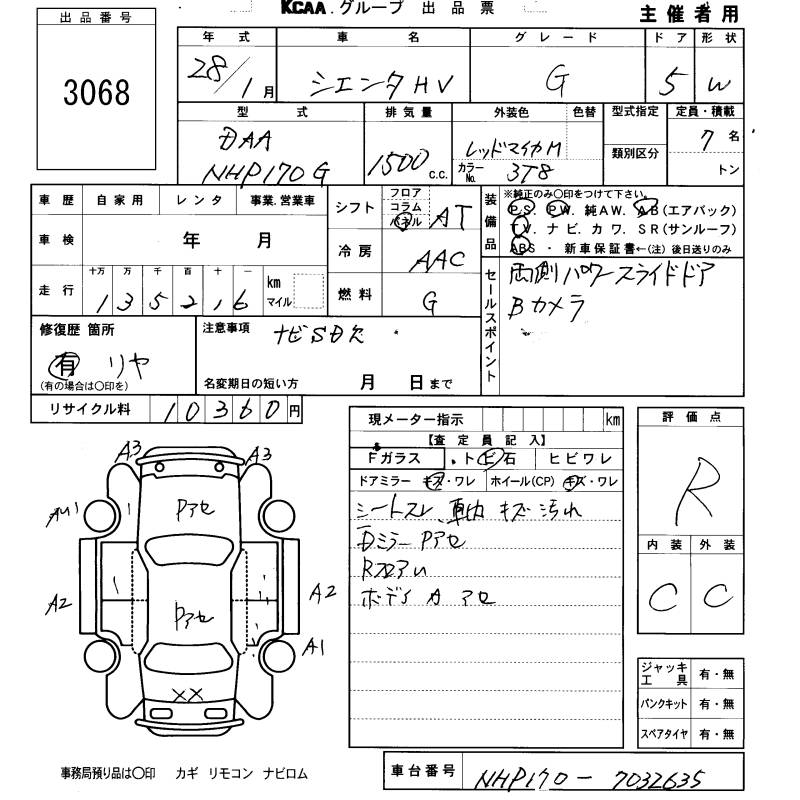 出品番号
3068
KCAA.グループ 出品票
主催者用
年式 車名 グレード ドア 形状
28/1月 シエンタHV G 5 W
型式 排気量 外装色 色替 型式指定 定員・積載
DAA NHP170G 1500c.c. レッドマイカM 7名
カラーNo. 3T8 類別区分 トン
車歴 自家用 レンタ 事業.営業車
シフト フロア コラム パネル AT
装備品 ※純正のみ〇印をつけて下さい。
P.S. P.W. 純A.W. A.B(エアバック)
T.V. ナビ. カワ. S.R(サンルーフ)
ABS ・ 新車保証書←(注) 後日送りのみ
車検 年 月
冷房 AAC
走行 十万 万 千 百 十 一 km マイル
135216
燃料 G
セールスポイント
両側パワースライドドア
Bカメラ
修復歴 箇所
有 リヤ
(有の場合は〇印を)
注意事項 ナビSD欠
名変期日の短い方 月 日まで
リサイクル料 10360円
現メーター指示 km
【査定員記入】
Fガラス ・トビ石 ヒビワレ
ドアミラー キズ・ワレ ホイール(CP) キズ・ワレ
シートスレ、車内 キズ 汚れ
Dミラー Pアセ
ボディ カ アセ
評価点
R
内装 外装
C C
A3 A3
Pアセ
A2 A2
Pアセ
A1
XX
ジャッキ工具 有・無
パンクキット 有・無
スペアタイヤ 有・無
事務局預り品は〇印 カギ リモコン ナビロム
車台番号 NHP170-7032635